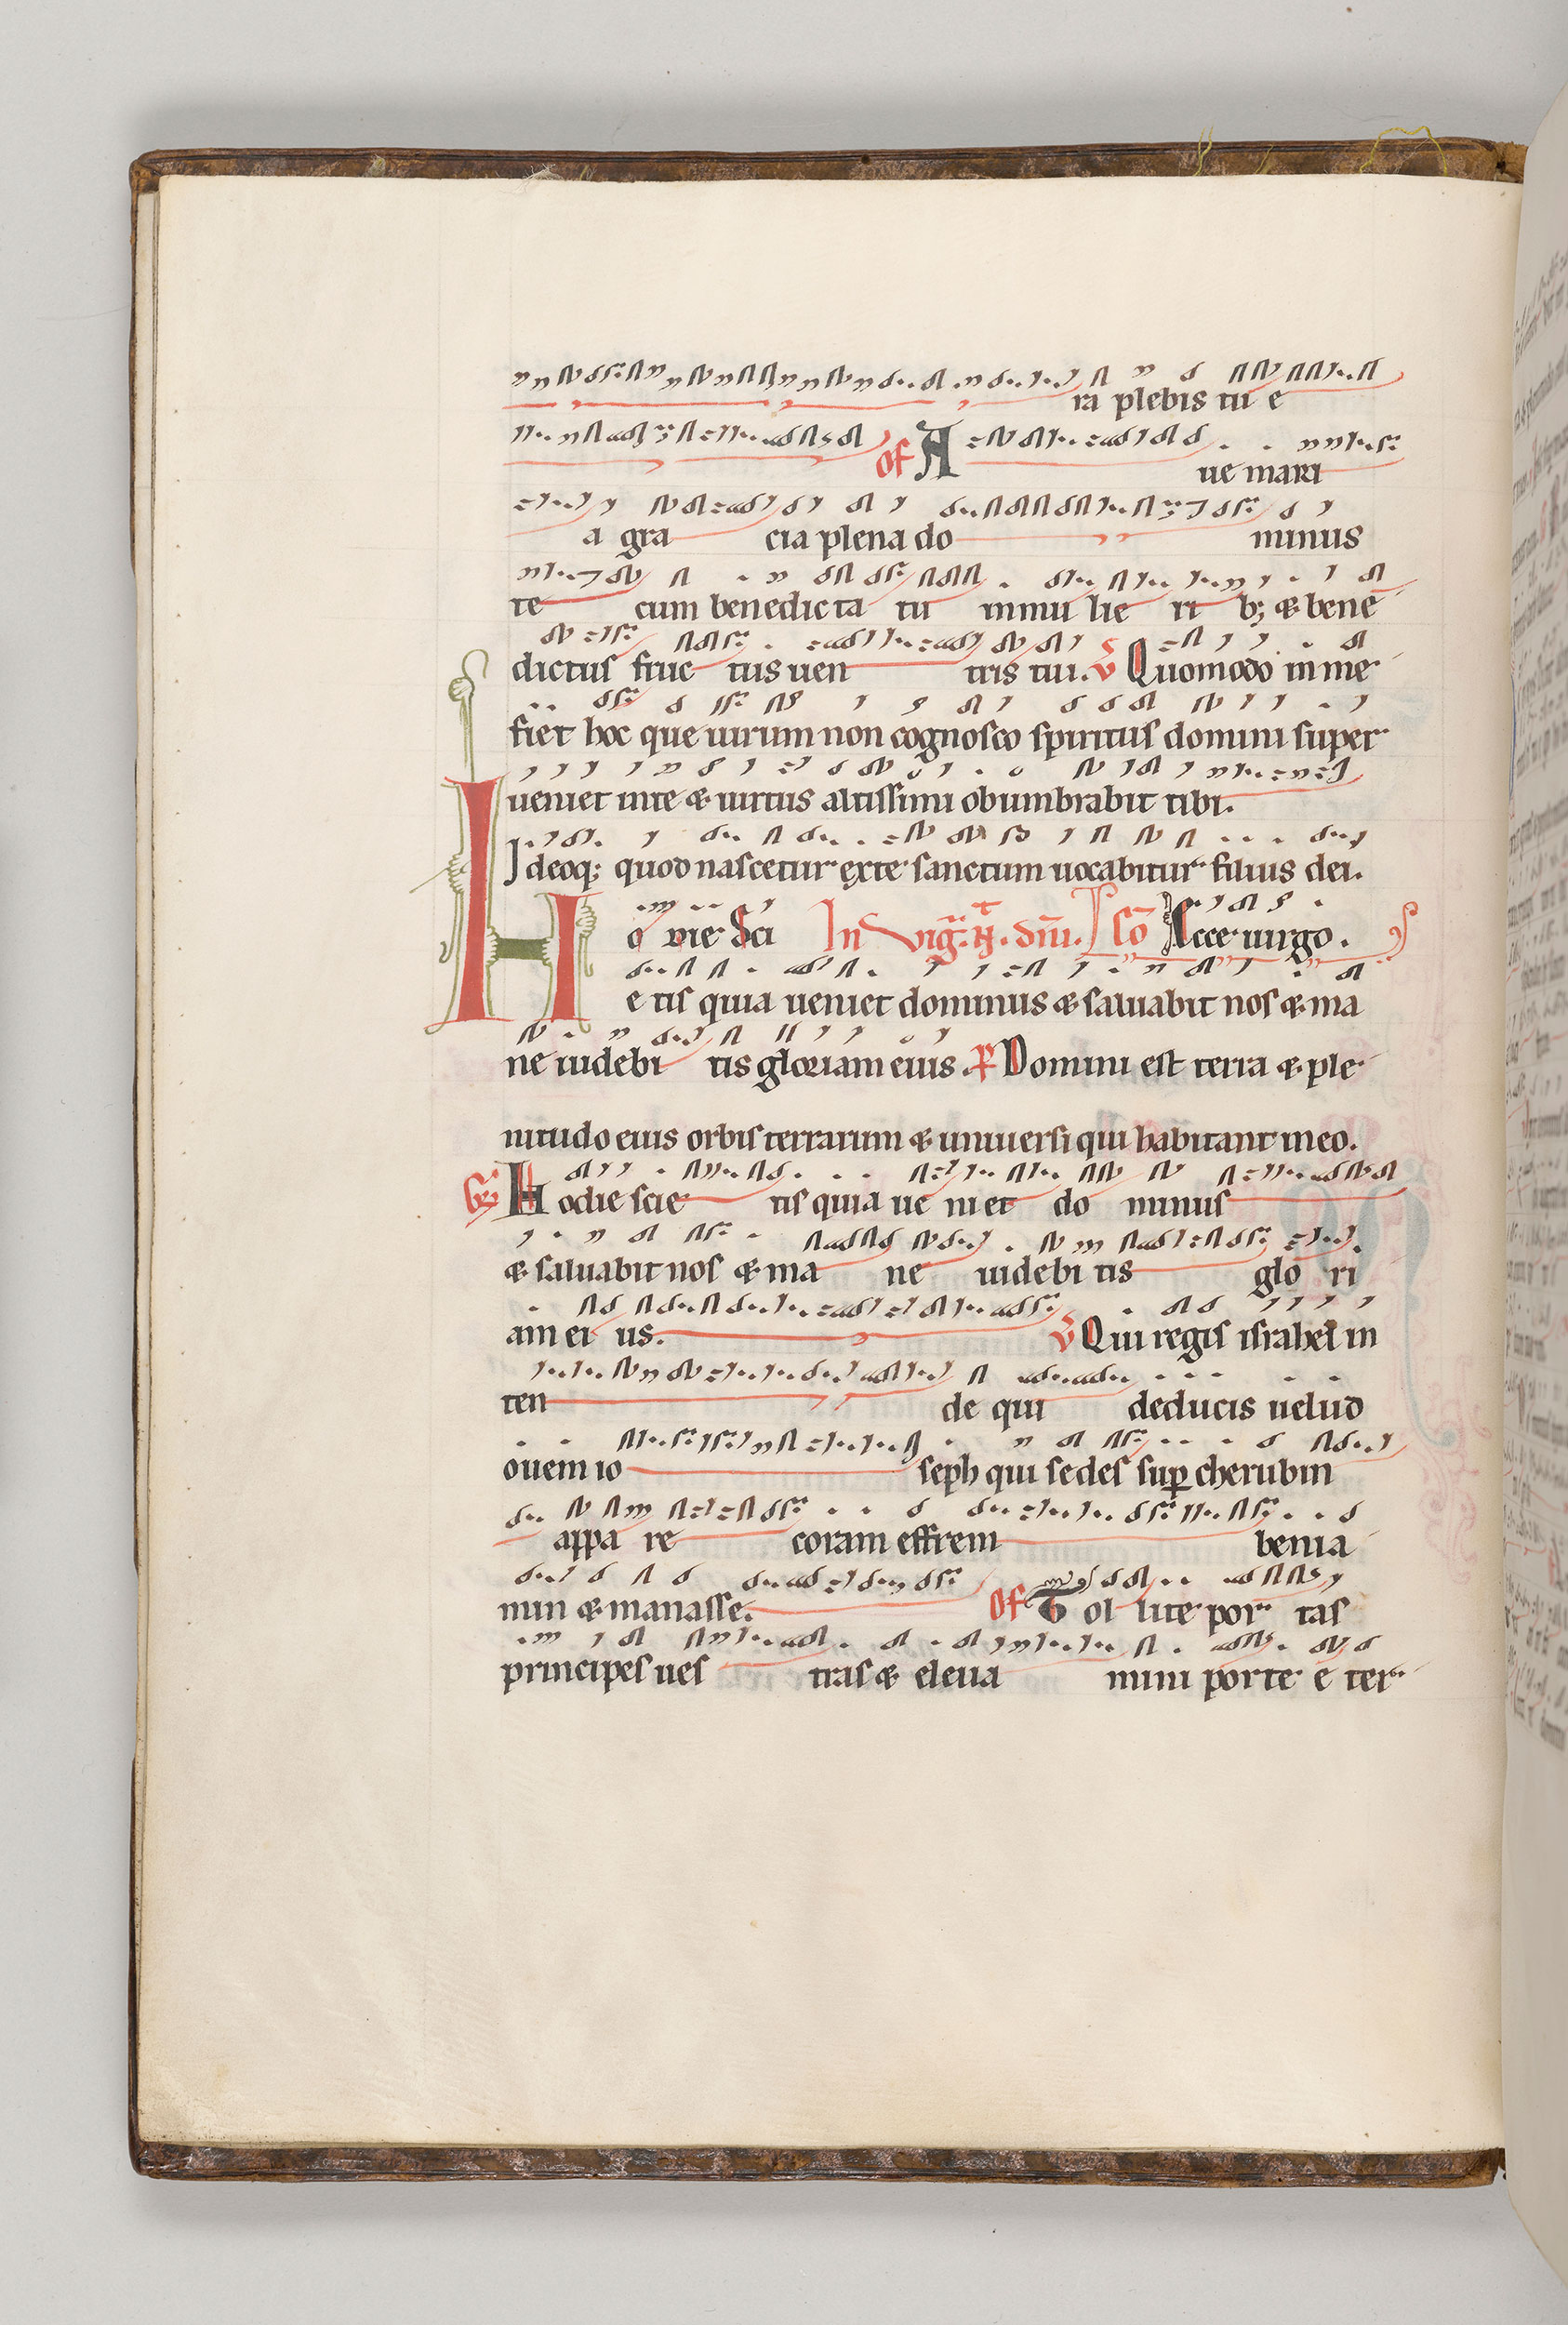 ra plebis tu e
Of A ue mari
a gra cia plena do minus
te cum benedicta tu inmu lie ri b; & bene
dictus fruc tus uen tris tui. V Quomodo in me
fiet hoc que uirum non cognosco spiritus domini super
ueniet inte & uirtus altissimi obumbrabit tibi.
Ideoq; quod nascetur exte sanctum uocabitur filius dei.
H o die Sci In vig. dni. Co Ecce uirgo.
e tis quia ueniet dominus & saluabit nos & ma
ne uidebi tis gloriam eius. P Domini est terra & ple
nitudo eius orbis terrarum & uniuersi qui habitant in eo.
Gr Hodie scie tis quia ue ni et do minus
& saluabit nos & ma ne uidebi tis glo ri
am ei us. V Qui regis israhel in
ten de qui deducis uelud
ouem io seph qui sedes sup cherubin
appa re coram effrem benia
min & manasse. Of Tol lite por tas
principes ues tras & eleua mini porte e ter